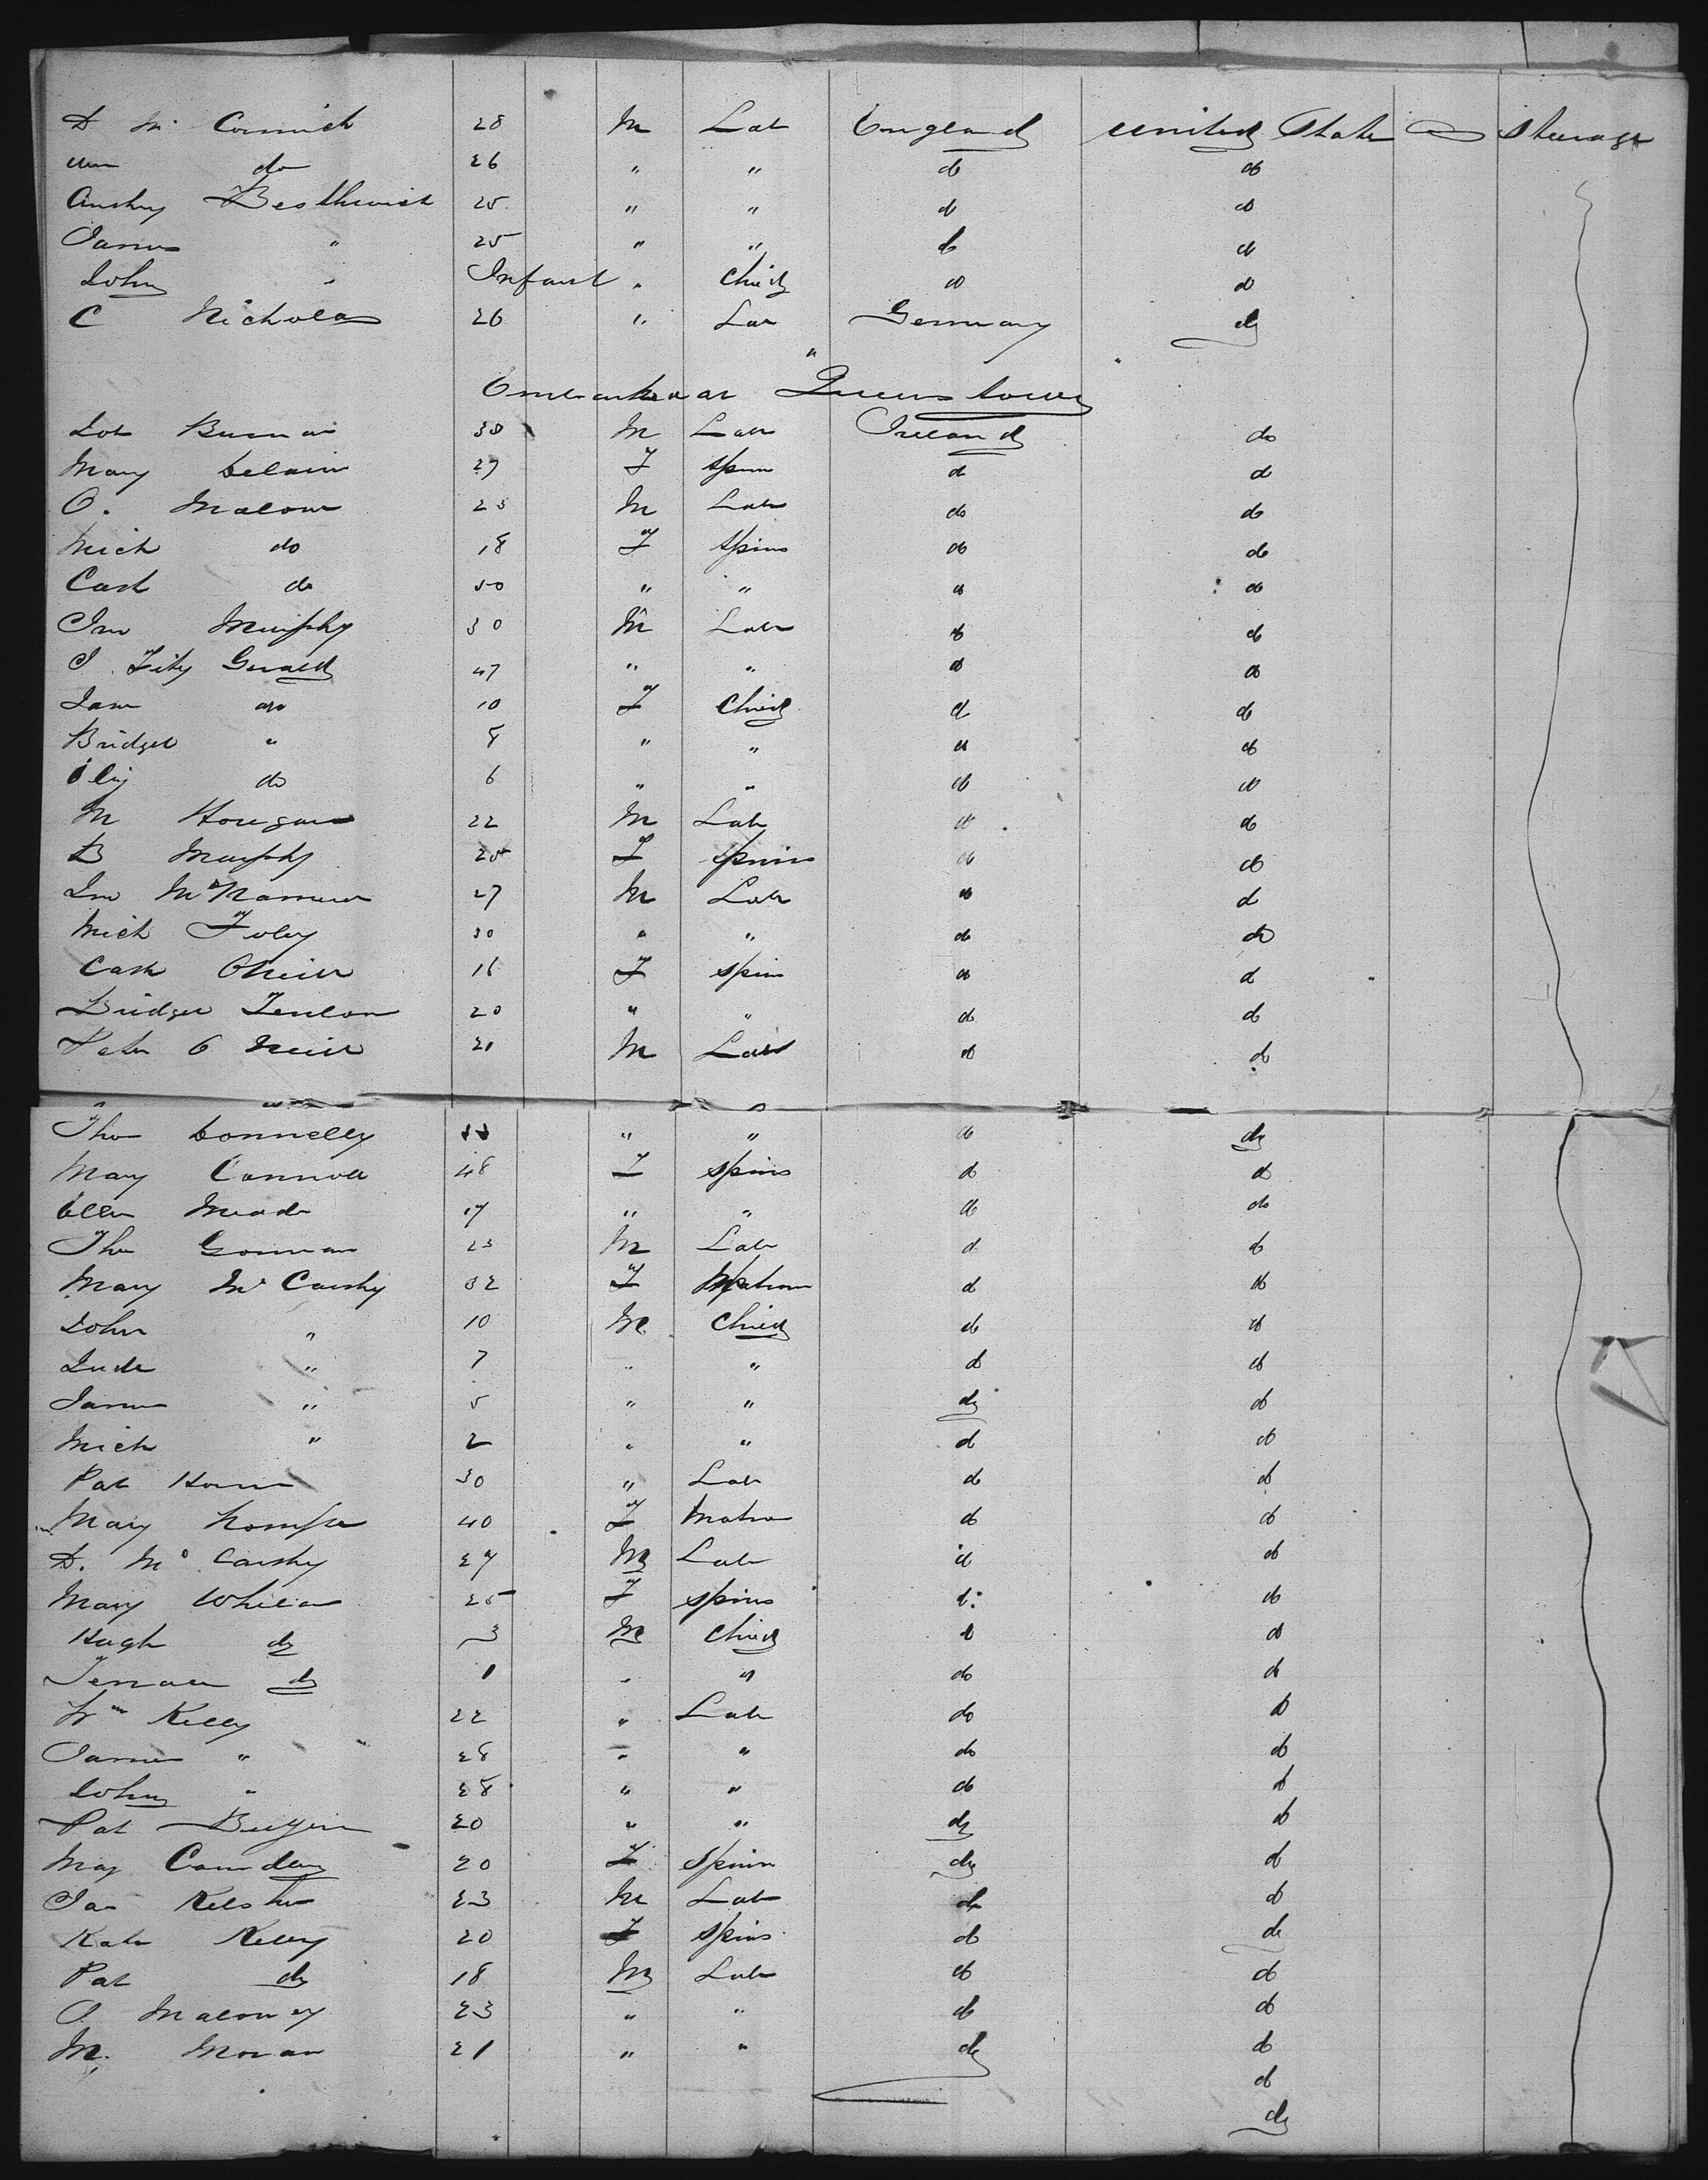 D Mc Cormick 28 M Lab England United States Steerage
Wm do 26 " " do do
Besthwick 25 " " do do
James " 25 " " do do
John " Infant " Child do do
C Nicholas 26 " Lab Germany do
Embarked at Queenstown
30 M Lab Ireland do
Mary 27 F Spin do do
O. Malone 25 M Lab do do
Mich do 18 F Spins do do
Cath do 50 " " do do
Jno Murphy 30 M Lab do do
J Fitz Gerald 47 " " do do
Jane do 10 F Child do do
Bridget " 8 " " do do
Eliz do 6 " " do do
M Hourgan 22 M Lab do do
B Murphy 25 F Spins do do
Jno McNamara 27 M Lab do do
Mich Foley 30 " " do do
Cath ONeill 16 F Spin do do
Bridget Fenlon 20 " " do do
Peter O Neill 21 M Lab do do
Tho Connelly 44 " " do do
Mary Connoll 48 F Spins do do
Ellen Meade 17 " " do do
Tho Gorman 23 M Lab do do
Mary Mc Carthy 32 F Matron do do
John " 10 M Child do do
7 " " do do
James " 5 " " do do
Mich " 2 " " do do
Pat 30 " Lab do do
Mary 40 F Matron do do
D. Mc Carthy 27 M Lab do do
Mary Whelan 25 F Spins do do
Hugh do 3 M Child do do
do 1 " " do do
Wm Kelly 22 " Lab do do
James " 28 " " do do
John " 28 " " do do
Pat 20 " " do do
May 20 F Spins do do
Jas 23 M Lab do do
Kate Kelly 20 F Spins do do
Pat do 18 M Lab do do
O Maloney 23 " " do do
M. Moran 21 " " do do
do
do